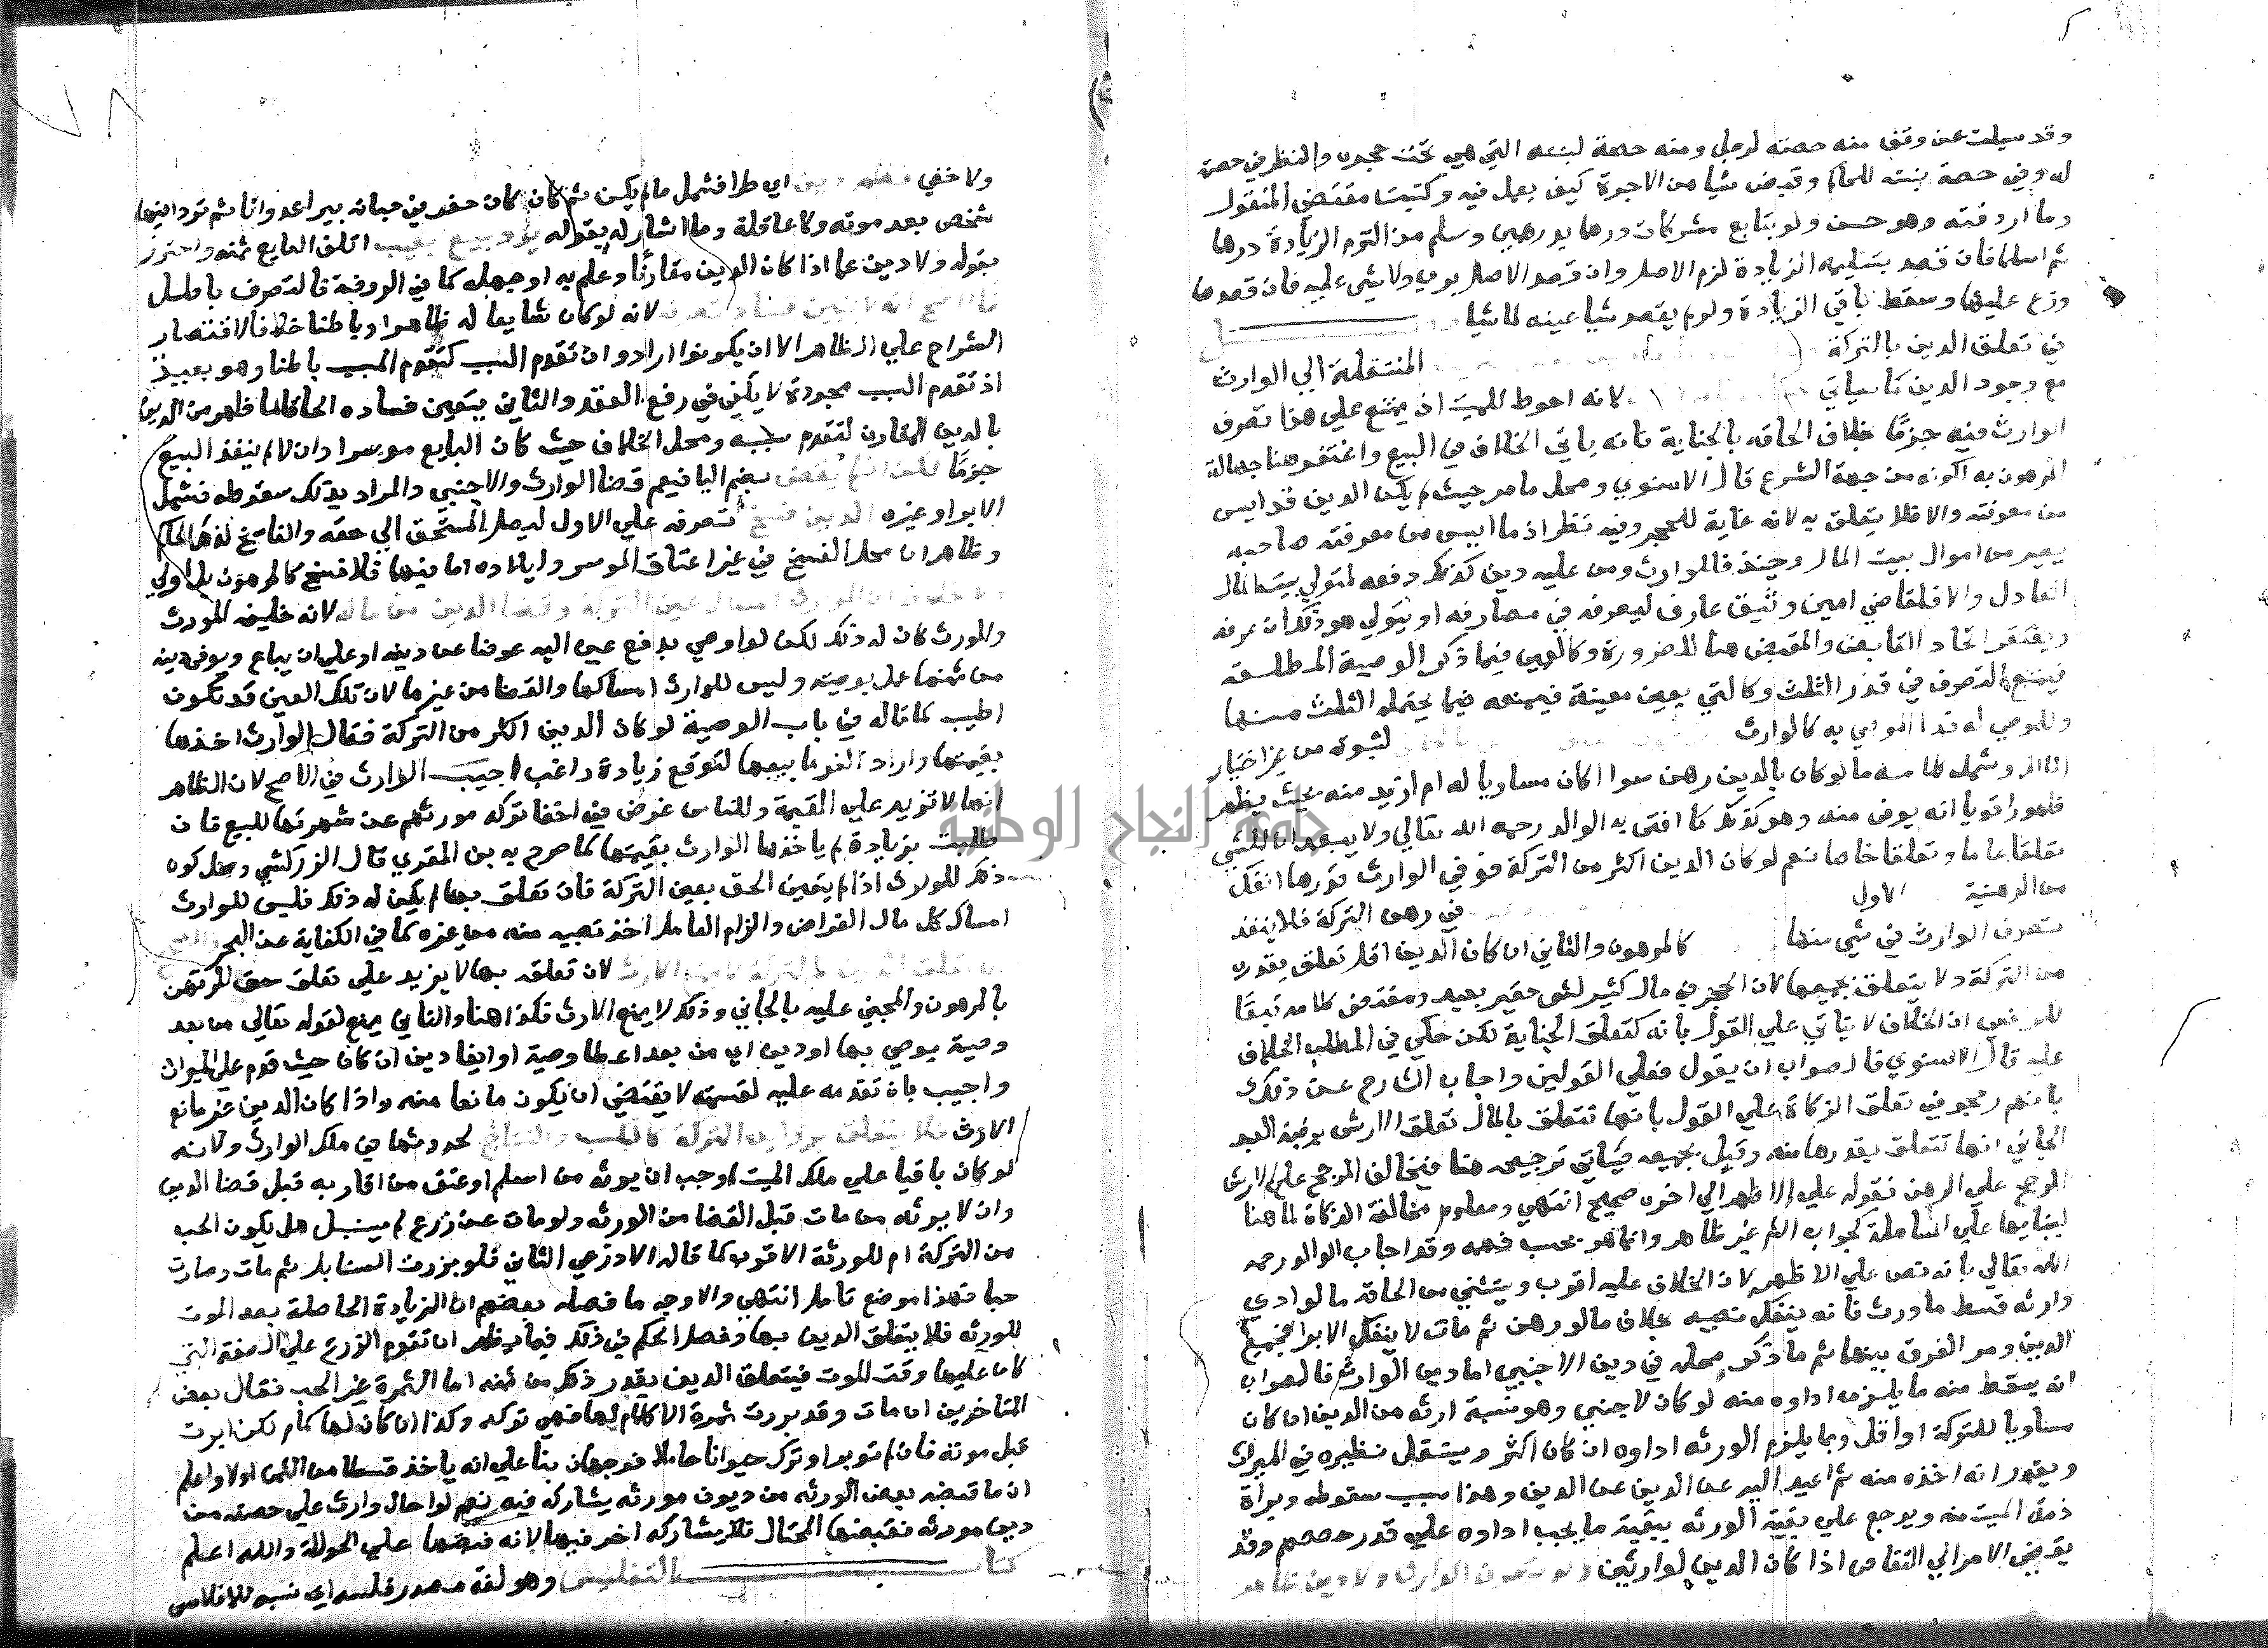 وقد سيلت عن وقف منه حصته لرجل ومنه حصة لبنته التي هي تحت حجره والنظر في حصته
له وفي حصة بنته للحاكم وقبض شيا من الاجرة كيف يعمل فيه وكتبت مقتضى المنقول
وما اردفته وهو حسن ولو تبايع مشركان درهما بدرهمين وسلم من التزم الزيادة درهما
ثم اسلما فان قصد بتسليمه الزيادة لزم الاصل وان قصد الاصل بري ولا شي عليه فان قصدهما
وزع عليهما وسقط باقي الزيادة ولو لم يقصد شيا عينه لما شيا
في تعلق الدين بالتركة
مع وجود الدين كما سياتي المنتقلة الي الوارث
لانه احوط للميت اذ يمتنع علي هذا تصرف
الوارث فيه جزما بخلاف الحاقه بالجناية فانه ياتي الخلاف في البيع واغتفر هنا جهالة
المرهون به لكونه من جهة الشرع قال الاسنوي ومحل ما مر حيث لم يكن الدين قد ايس
من معرفته والا فلا يتعلق به لانه غاية للحجر وفيه نظر اذ ما ايس من معرفته صاحبه
يصير من اموال بيت المال وحينئذ فللوارث ومن عليه دين كذلك دفعه لمتولي بيت المال
العادل والا فلقاضي امين وثيق عارف ليصرفه في مصارفه او يتولي هو ذلك ان عرفه
ويغتفر اتحاد القابض والمقبض هنا للضرورة وكالدين فيما ذكر الوصية المطلقة
فيمتنع التصرف في قدر الثلث وكالتي بعين معينة فيمنعه فيما يحتمله الثلث منها
وللموصي له فدا الموصي به كالوارث لثبوته من غير اختيار
المالك وشمل كلامه ما لو كان بالدين رهن سوا اكان مساويا له ام ازيد منه بحيث يظهر
ظهورا قويا انه يوفى منه وهو كذلك كما افتى به الوالد رحمه الله تعالي ولا يبعد ان للشي
تعلقا عاما وتعلقا خاصا نعم لو كان الدين اكثر من التركة فوفي الوارث قدرها انفك
من الرهنية الاول في رهن التركة فلا ينفذ
تصرف الوارث في شي منها كالمرهون والثاني ان كان الدين اقل تعلق بقدره
من التركة ولا يتعلق بجميعها لان الحجز في مال كثير لشي حقير بعيد ومقتضى كلامه تبعا
للرافعي ان الخلاف لا ياتي علي القول بانه كتعلق الجناية لكن حكي في المطلب الخلاف
عليه قال الاسنوي فالصواب ان يقول فعلي القولين واجاب الشارح عن ذلك
بانهم رجحو في تعلق الزكاة علي القول بانها تتعلق بالمال تعلق الارش برقبة العبد
الجاني انها تتعلق بقدرها منه وقيل بجميعه فياتي ترجيحه هنا فيخالف المرجح علي الارش
المرجح علي الرهن فقوله علي الاظهر الي اخره صحيح انتهي ومعلوم مخالفة الزكاة لما هنا
لبنايها علي المساهلة كجواب الشم غير ظاهر وانما هو بحسب فهمه وقد اجاب الوالد رحمه
الله تعالي بانه نص علي الاظهر لان الخلاف عليه اقوب ويستثني من الحاقه ما لو ادي
وارثه قسط ما ورث فانه ينفك نصيبه بخلاف ما لو رهن ثم مات لا ينفك الا بوا جميع
الدين ومر الفرق بينهما ثم ما ذكر محله في دين الاجنبي اما دين الوارث فالصواب
انه يسقط منه ما يلزمه اداوه منه لو كان لاجنبي وهو نسبة ارثه من الدين ان كان
مساويا للتركة او اقل وما يلزم الورثه اداوه ان كان اكثر ويستقل نظيره في الميراث
ويقدر انه اخذه منه ثم اعيد اليه عن الدين عن الدين وهذا سبب سقوطه وبراة
ذمة الميت منه ويرجع علي بقية الورثه ببقية ما يجب اداوه علي قدر حصصهم وقد
يفضي الامر الي التقاص اذا كان الدين لوارثين ولو تصرف الوارث ولا دين ظاهر
ولا خفي فظهر دين اي طرا فشمل ما لم يكن ثم كان كان حفر في حياته بير اعدوانا ثم تردا فيها
شخص بعد موته ولا عاقلة وما اشار له بقوله برد مبيع بعيب اتلف البايع ثمنه واحترز
بقوله ولا دين عما اذا كان الدين مقارنا وعلم به او جهله كما في الروضة فالتصرف باطل
فالاصح انه لا يتبين فساد تصرفه لانه لو كان شايعا له ظاهرا وباطنا خلافا لاقتصار
الشراح علي الظاهر الا ان يكونوا ارادوا ان تقدم السبب كتقدم المسبب باطنا وهو بعيد
اذ تقدم السبب بمجرده لا يكفي في رفع العقد والثاني يتبين فساده الحاقا لما ظهر من الدين
بالدين المقارن لتقدم سببه ومحل الخلاف حيث كان البايع موسرا وان لا لم ينفذ البيع
جزما لكن ان لم يقض بضم اليا فيعم قضا الوارث والاجنبي والمراد بذلك سقوطه فشمل
الابرا وغيره الدين فسخ تصرفه علي الاول ليصل المستحق الي حقه والفاسخ له هو الحاكم
وظاهر ان محل الفسخ في غير اعتاق الموسر وايلاده اما فيهما فلا فسخ كالمرهون بل اولي
ولا خلاف ان للوارث امساك عين التركة وقضا الدين من ماله لانه خليفة المورث
والمورث كان له ذلك لكن لو اوصي بدفع عين اليه عوضا عن دينه او علي ان يباع ويوفي دينه
من ثمنها عمل بوصيته وليس للوارث امساكها والقضا من غيرها لان تلك العين قد تكون
اطيب كما قاله في باب الوصية لو كان الدين اكثر من التركة فقال الوارث اخذها
بقيمتها واراد الغرما بيعها لتوقع زيادة راغب اجيب الوارث في الاصح لان الظاهر
انها لا تزيد علي القيمة وللناس غرض في اخفا تركة مورثهم عن شهرتها للبيع فان
طلبت بزيادة لم ياخذها الوارث بقيمتها كما صرح به بن المقري قال الزركشي ومحل كون
ذلك للوارث اذا لم يتعين الحق بعين التركة فان تعلق بها لم يكن له ذلك فليس للوارث
امساك كل مال القراض والزام العامل اخذ نصيبه منه من غيره كما في الكفاية عن البحر والصحيح
ان تعلق الدين بالتركة لا يمنع الارث لان تعلقه بها لا يزيد علي تعلق حق المرتهن
بالمرهون والمجني عليه بالجاني وذلك لا يمنع الارث فكذا هنا والثاني يمنع لقوله تعالي من بعد
وصية يوصي بها او دين اي من بعد اعطا وصية او ايفا دين ان كان حيث قدم علي الميراث
واجيب بان تقدمه عليه لقسمته لا يقتضي ان يكون مانعا منه واذا كان الدين غير مانع
الارث فلا يتعلق بزوايد التركة كالكسب والنتاج لحدوثها في ملك الوارث ولانه
لو كان باقيا علي ملك الميت لوجب ان يرثه من اسلم او عتق من اقاربه قبل قضا الدين
وان لا يرثه من مات قبل القضا من الورثه ولو مات عن زرع لم يسنبل هل يكون الحب
من التركة ام للورثة الاقرب كما قاله الاذرعي الثاني فلو برزت السنابل ثم مات وصارت
حبا فهذا موضع تامل انتهي والاوجه ما فصله بعضهم ان الزيادة الحاصلة بعد الموت
للورثه فلا يتعلق الدين بها وفصل الحكم في ذلك فيما يظهر ان تقوم الزرع علي الصفة التي
كان عليها وقت الموت فيتعلق الدين بقدر ذلك من ثمنه اما الثمرة غير الحب فقال بعض
المتاخرين ان مات وقد برزت ثمرة لا كمام لها فهي تركة وكذا ان كان لها كمام لكن ابرت
قبل موته فان لم توبر او ترك حيوانا حاملا فوجهان بنا علي انه ياخذ قسطا من الثمن او لا واعلم
ان ما قبضه بعض الورثه من ديون مورثه يشاركه فيه نعم لو احال وارث علي حصته من
دين مورثه فقبضها المحتال فلا يشاركه اخر فيها لانه قبضها علي الحوالة والله اعلم
كتاب التفليس وهو لغة مصدر فلسه اي نسبه للافلاس
جامعة النجاح الوطنية